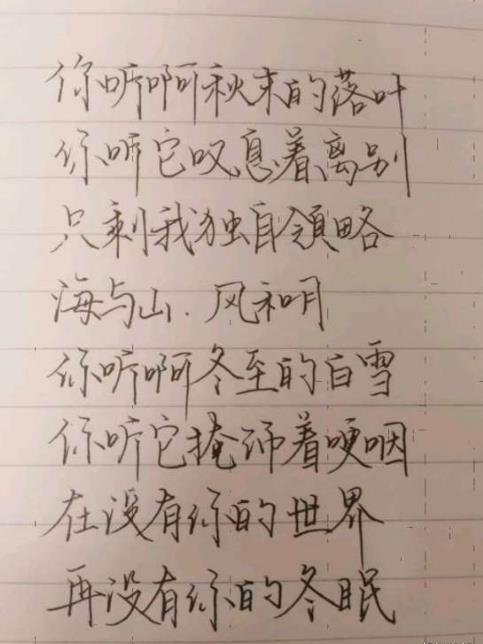 你听啊秋末的落叶
你听它叹息着离别
只剩我独自领略
海与山.风和月
你听啊冬至的白雪
你听它掩饰着哽咽
在没有你的世界
再没有你的冬眠